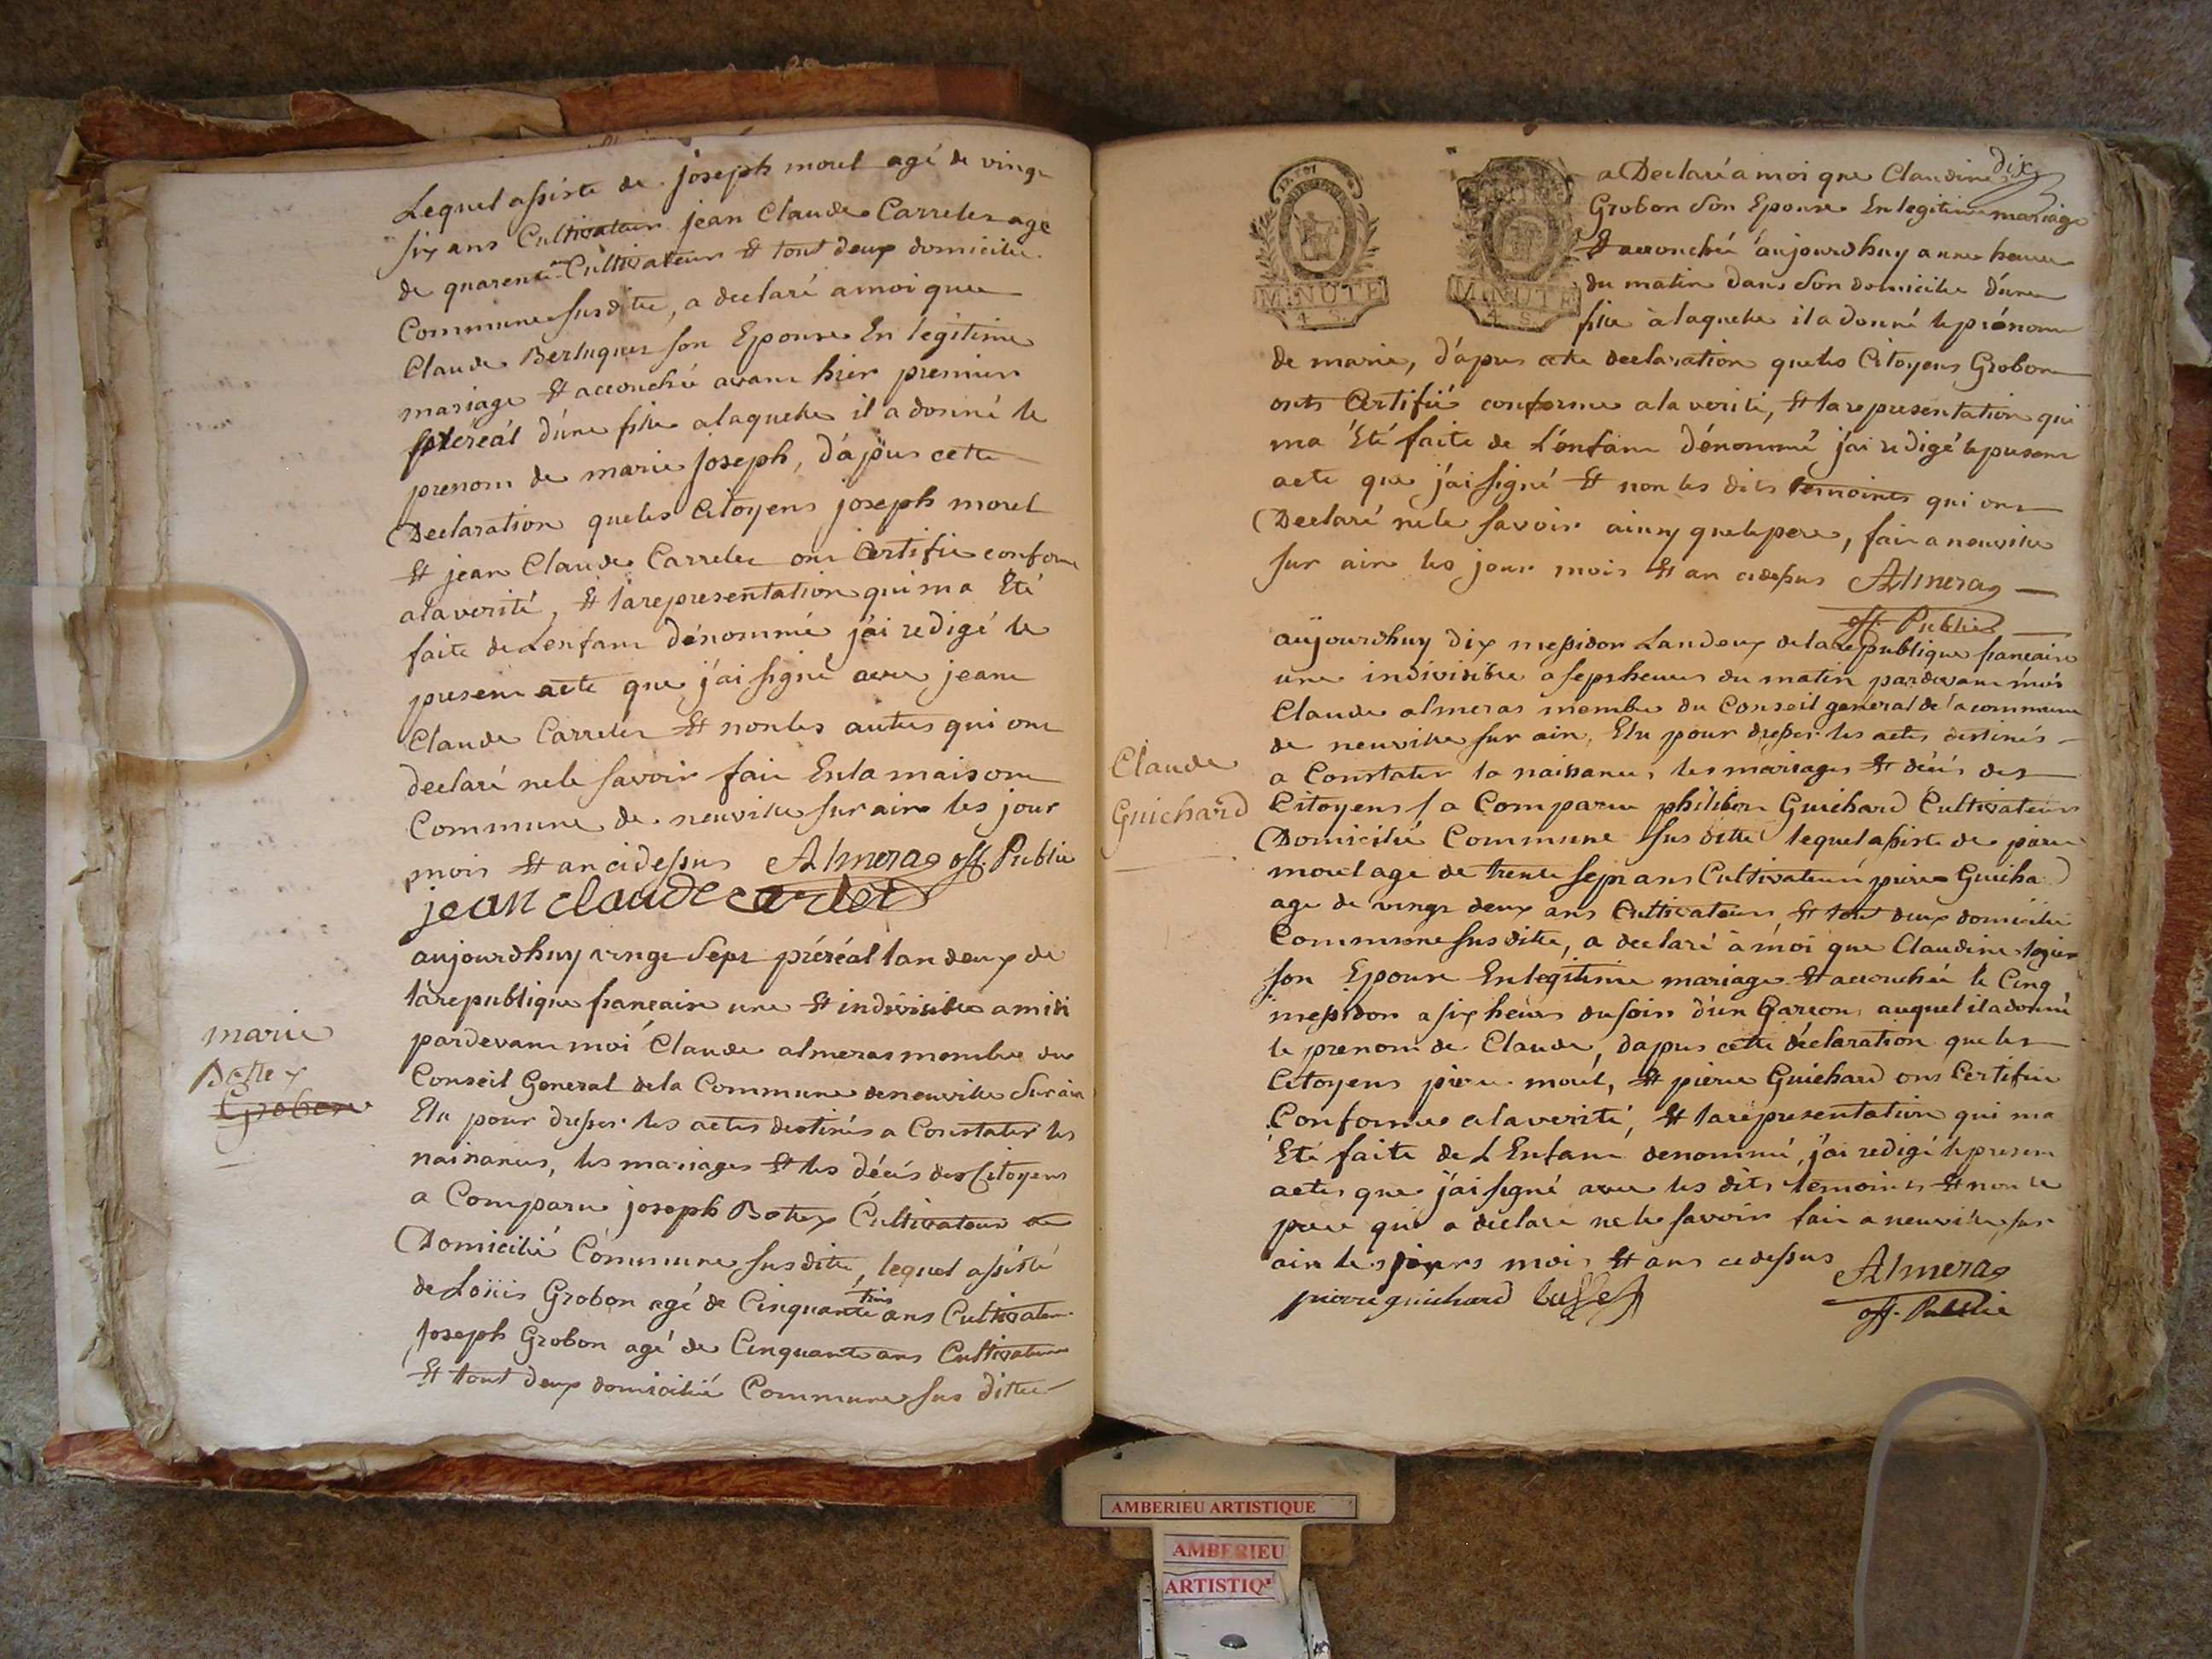 Lequel assisté de joseph morel agé de vingt
six ans Cultivateur jean Claude Carrelet agé
de quarente ans Cultivateur et tout deux domicilié
Commune susditte, a declaré a moi que
Claude Berluquet son Epouse En legitime
mariage Et accouchée avant hier premier
préréal d'une fille a laquelle il a donné le
prenom de marie joseph, d'aprés cette
Declaration que les Citoyens joseph morel
Et jean Claude Carrelet ont Certifié conforme
a la verité, Et la representation qui m a Eté
faite de L'enfant dénommé, j'ai redigé le
present acte que j'ai signé avec jean
Claude Carrelet Et non les autres qui ont
declaré ne le savoir fait En la maison
Commune de neuville sur ain les jour
mois Et an ci dessus Almeras off. Public
jean claude carlet
aujourdhuy vingt Sept préréal lan deux de
la republique francaise une Et indivisible a midi
pardevant moi Claude almeras membre du
Conseil General de la Commune de neuville Sur ain
Elu pour dresser les actes destinés a Constater les
naissances, les mariages Et les décés des Citoyens
a Comparu joseph Bottex Cultivateur
Domicilié Commune susditte, lequel assisté
de Loüis Grobon agé de Cinquante trois ans Cultivateur
Joseph Grobon agé de Cinquante ans Cultivateur
Et tout deux domicilié Commune sus ditte
marie
Bottex
Grobon
dix
MINUTE
4. S.
MINUTE
4. S.
a Declaré a moi que Claudine
Grobon Son Epouse En legitime mariage
Et accouchée aujourdhuy a une heure
du matin dans Son domicile d'une
fille à laquelle il a donné le prénom
de marie, d'aprés cette declaration que les Citoyens Grobon
onts Certifié conforme a la verité, Et la representation qui
ma Eté faite de L'enfant dénommé j'ai redigé le present
acte que j'ai signé Et non les dits temoints qui ont
Declaré ne le savoir ainsy que le pere, fait a neuville
sur ain les jour mois Et an cidessus Almeras
off. Public
aujourdhuy dix messidor Lan deux de la republique francaise
une indivisible a sept heures du matin pardevant moi
Claude almeras membre du Conseil general de la commune
de neuville sur ain, Elu pour dresser les actes destinés
a Constater la naissances, les mariages Et décés des
Citoyens a Comparu philibert Guichard Cultivateur
Domicilié Commune sus ditte lequel assisté de piere
morel agé de trente sept ans Cultivateur piere Guichard
agé de vingt deux ans Cultivateur, Et tout deux domicilié
Commune sus ditte, a declaré à moi que Claudine
son Epouse En legitime mariage Et accouchée le Cinq
messidor a six heures du soir d'un Garcon auquel il a donné
le prenom de Claude, dapres cette déclaration que les
Citoyens piere morel, Et pierre Guichard ont Certifié
Conforme a la verité, Et la representation qui ma
Eté faite de L Enfant denommé, j'ai redigé le present
actes que j'ai signé avec les dits temoints Et non le
pere qui a declaré ne le savoir fait a neuville sur
ain les jours mois Et ans cedessus Almeras
pierre guichard
off. Public
Claude
Guichard
AMBERIEU ARTISTIQUE
AMBERIEU
ARTISTIQ